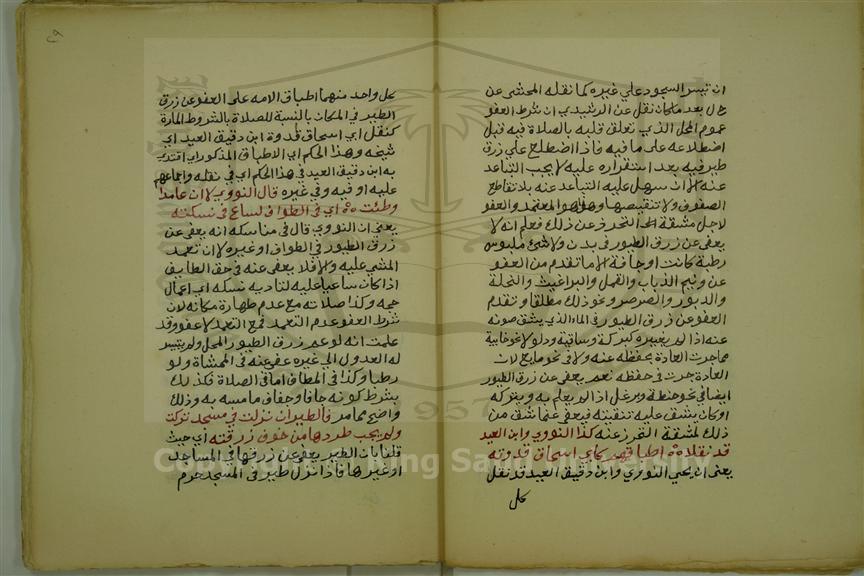 ان تيسر السجود علي غيره كما نقله المحشي عن
ح ل بعد ما كان نقل عن الرشيدي ان شرط العفو
عموم المحل الذي تعلق قلبه بالصلاة فيه قبل
اضطلاعه على ما فيه فاذا اضطلع علي زرق
طير فيه بعد استقراره عليه لا يجب التباعد
عنه الا ان سهل عليه التباعد عنه بلا تقاطع
الصفوف ولا تنقيصها وهو المعتمد والعفو
لاجل مشقة التحرز عن ذلك فعلم انه لا
يعفى عن زرق الطيور في بدن ولا شئ ملبوس
رطبة كانت او جافة الا ما تقدم من العفو
عن ونيم الذباب والقمل والبراغيث والنحلة
والدبور والصرصر ونحو ذلك مطلقا وتقدم
العفو عن زرق الطيور في الماء الذي يشق صونه
عنه اذا لم يغيره كبركة وساقية ودلو لا نحو خابية
مما جرت العادة بحفظه عنه ولا في نحو مايع لان
العادة جرت في حفظه نعم يعفى عن زرق الطيور
ايضا في نحو حنطة وبرغل اذا لم يعلم به ويتركه
او كان يشق عليه تنقيته فيعفي عما شق من
ذلك لمشقة التحرز عنه كذا النووي وابن العيد
قد نقلا اطباقهم كابي اسحاق قدوته
يعنى ان يحي النووي وابن دقيق العيد قد نقل
كل
٤٩
كل واحد منهما اطباق الامه على العفو عن زرق
الطير في المكان بالنسبة للصلاة بالشروط المارة
كنقل ابي اسحاق قدوة ابن دقيق العيد اي
شيخه وهذا الحكم اي الاطباق المذكور اي اقتدى
به ابن دقيق العيد في هذا الحكم اي في نقله واجماعهم
عليه او فيه وفي غيره قال النووي لا ان عامدا
وطئت اي في الطواف لساع في نسكته
يعني ان النووي قال في مناسكه انه يعفي عن
زرق الطيور في الطواف او غيره لا ان تعمد
المشي عليه والا فلا يعفى عنه في حق الطايف
اذا كان ساعيا عليه لتاديه نسكه اي اعمال
حجه وكذا صلاته مع عدم طهارة مكانه لان
شرط العفو عدم التعمد فمع التعمد لا عفو وقد
علمت انه لو عم زرق الطيور المحل ولم يتيسر
له العدول الي غيره عفي عنه في الممشاة ولو
رطبا وكذا في المطاف اما في الصلاة فكذلك
بشرط كونه جافا وجفاف ما مسه به وذلك
واضح مما مر فالطير ان نزلت في مسجد تركت
ولم يجب طردها من خوف زرقته اي حيث
قلنا بان الطير يعفى عن زرقها في المساجد
او غيرها فاذا نزل طير في المسجد حرم
1957
Copyright © King Saud University